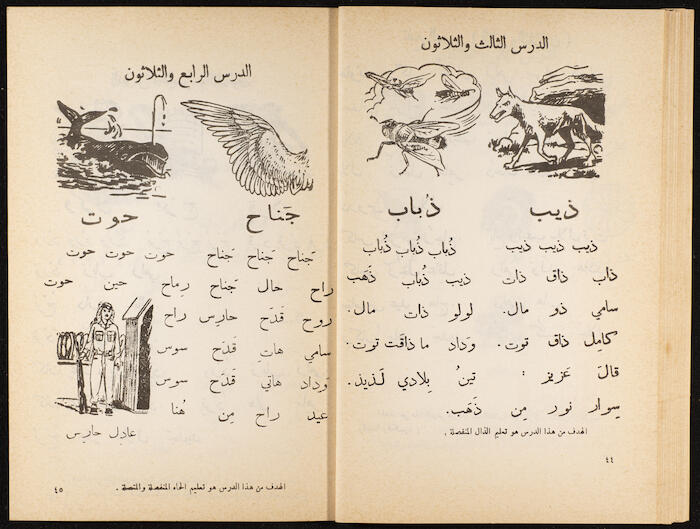 الدرس الثالث والثلاثون
ذيب ذُباب
ذيب ذيب ذيب ذُباب ذُباب ذُباب
ذاب ذاق ذات ذيب ذُباب ذَهَب
سامي ذو مال. لولو ذات مال.
كامِل ذاق توت. وِداد ما ذاقَت توت.
قالَ عَزيز : تينُ بِلادي لَذيذ.
سِوار نور مِن ذَهَب.
الهدف من هذا الدرس هو تعليم الذال المنفصلة .
٤٤
الدرس الرابع والثلاثون
جَناح حوت
جَناح جَناح جَناح حوت حوت حوت
راح حال جَناح رِماح حين حوت
روح قَدَح حارِس راح
سامي هات قَدَح سوس
وِداد هاتي قَدَح سوس
عيد راح مِن هُنا
عادِل حارِس
الهدف من هذا الدرس هو تعليم الحاء المنفصلة والمتصلة .
٤٥